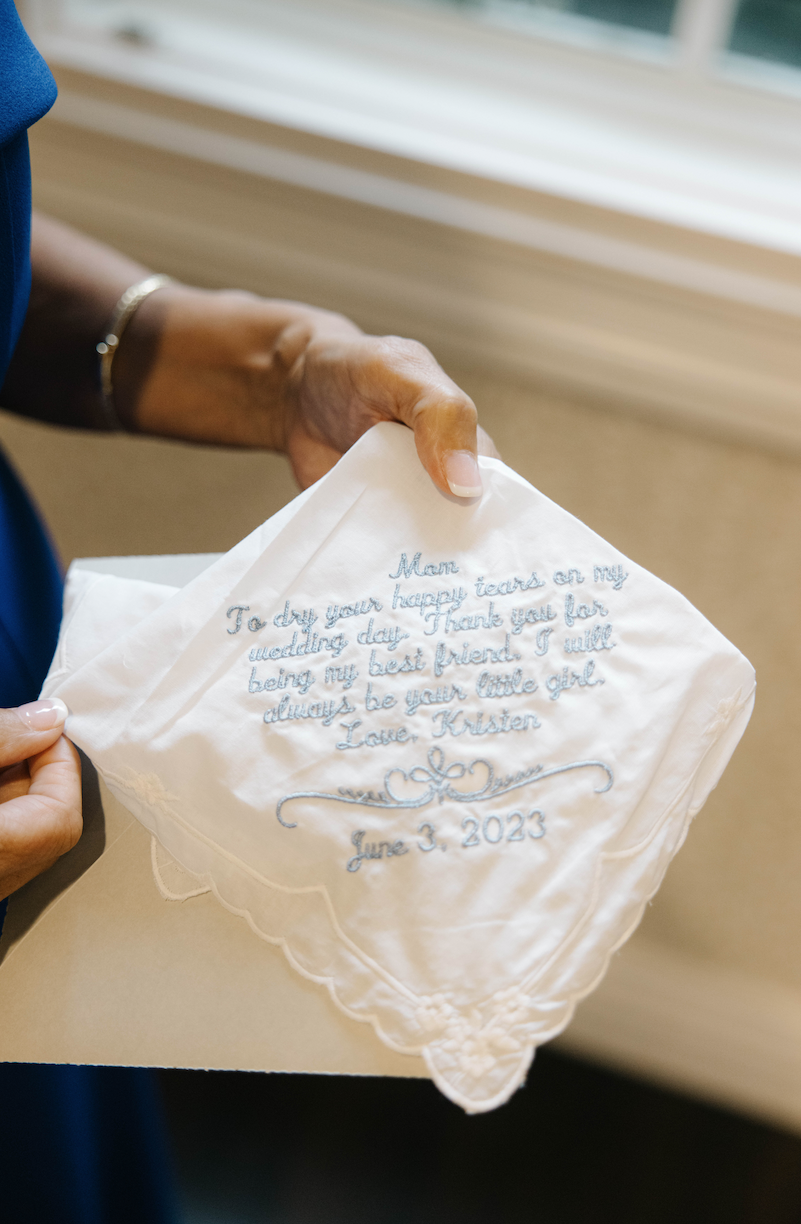 Mom
To dry your happy tears on my
wedding day. Thank you for
being my best friend. I will
always be your little girl.
Love, Kristen
June 3, 2023